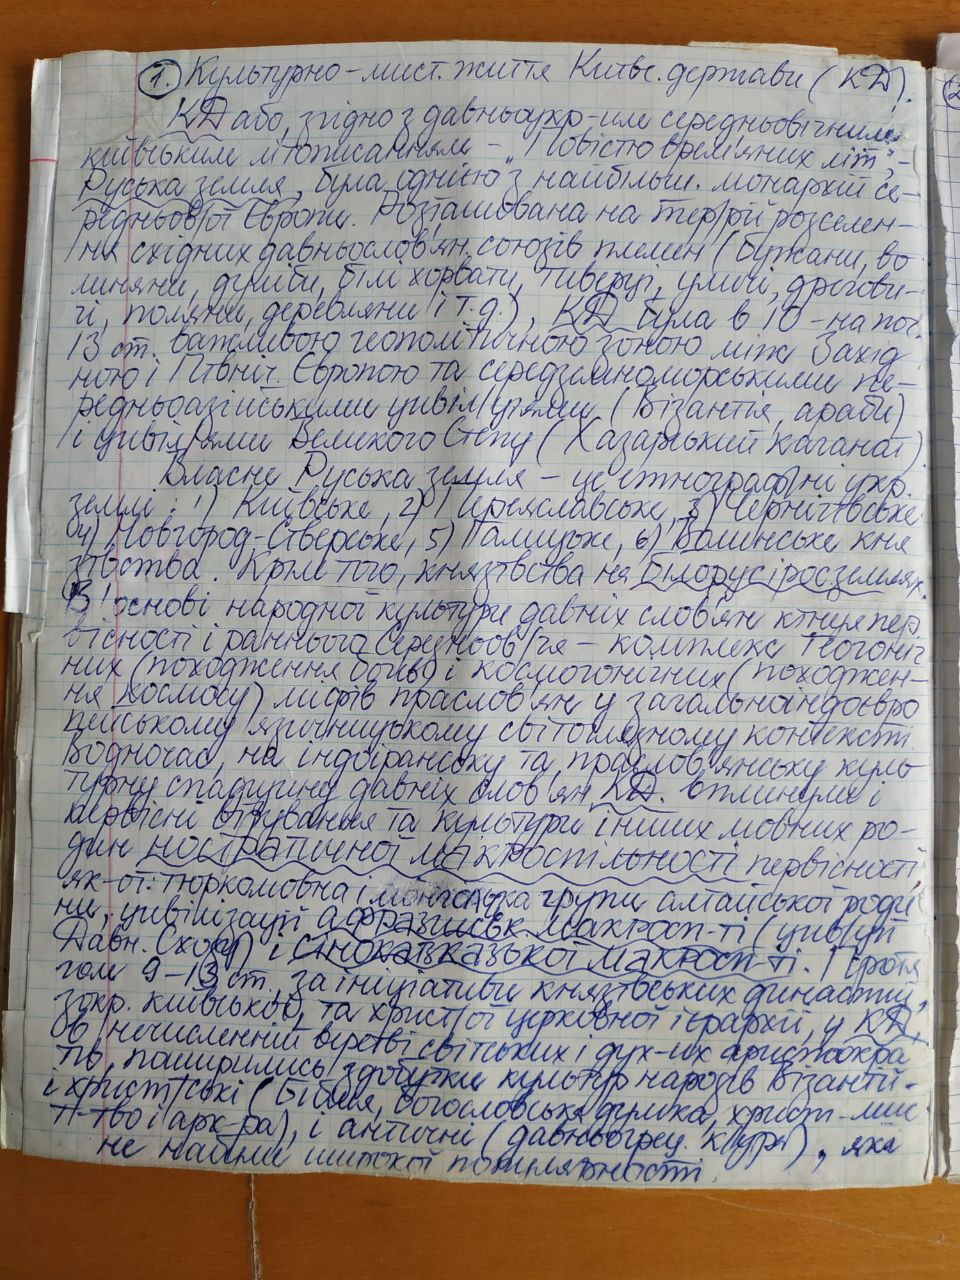 1. Культурно-мист. життя Київс. держави (КД).
КД або, згідно з давньоукр-им середньовічним
київським літописанням – „Повістю врем'яних літ", –
Руська земля, була однією з найбільш. монархій се-
редньов/ої Європи. Розташована на тер/рії розселен-
ня східних давньослов'ян. союзів племен (бужани, во
линяни, дуліби, білі хорвати, тиверці, уличі, дрегови-
чі, поляни, деревляни і т.д.), КД була в 10 – на поч
13 ст. важливою геополітичною зоною між Захід
ною і Північ. Європою та середземноморськими пе-
редньоазійськими цивіліз/ціями (Візантія, араби)
і цивіліз/ями Великого Степу (Хазарський каганат).
Власне Руська земля – це етнографічні укр.
землі: 1) Київське, 2) Переяславське, 3) Чернігівське
4) Новгород-Сіверське, 5) Галицьке, 6) Волинське кня
зівства. Крім того, князівства на білорус і рос. землях.
В основі народної культури давніх слов'ян кінця пер
вісності і раннього Середньов/ччя – комплекс теогоніч
них (походження богів) і космогонічних (походжен-
ня Космосу) міфів праслов'ян у загальноіндоєвро
пейському язичницькому світоглядному контексті.
Водночас, на індоіранську та праслов'янську куль
турну спадщину давніх слов'ян КД. вплинули і
первісні вірування та культури інших мовних ро-
дин ностратичної макроспільності первісності,
як-от: тюркомовна і монгольська групи алтайської роди
ни, цивілізації афразийськ макросп-ті (цив/ції
Давн. Сходу) і синокавказької макросп-ті. Протя
гом 9–13 ст., за ініціативи князівських династій,
зокр. київської, та христ/ої церковної ієрархії, у КД,
в нечисленній верстві світських і дух-их аристокра
тів, поширились здобутки культур народів Візантії-
і христ/ські (Біблія, богословська думка, христ-мис
т-тво і арх-ра), і античні (давньогрец. к/ура), яка
не набули широкої популярності.